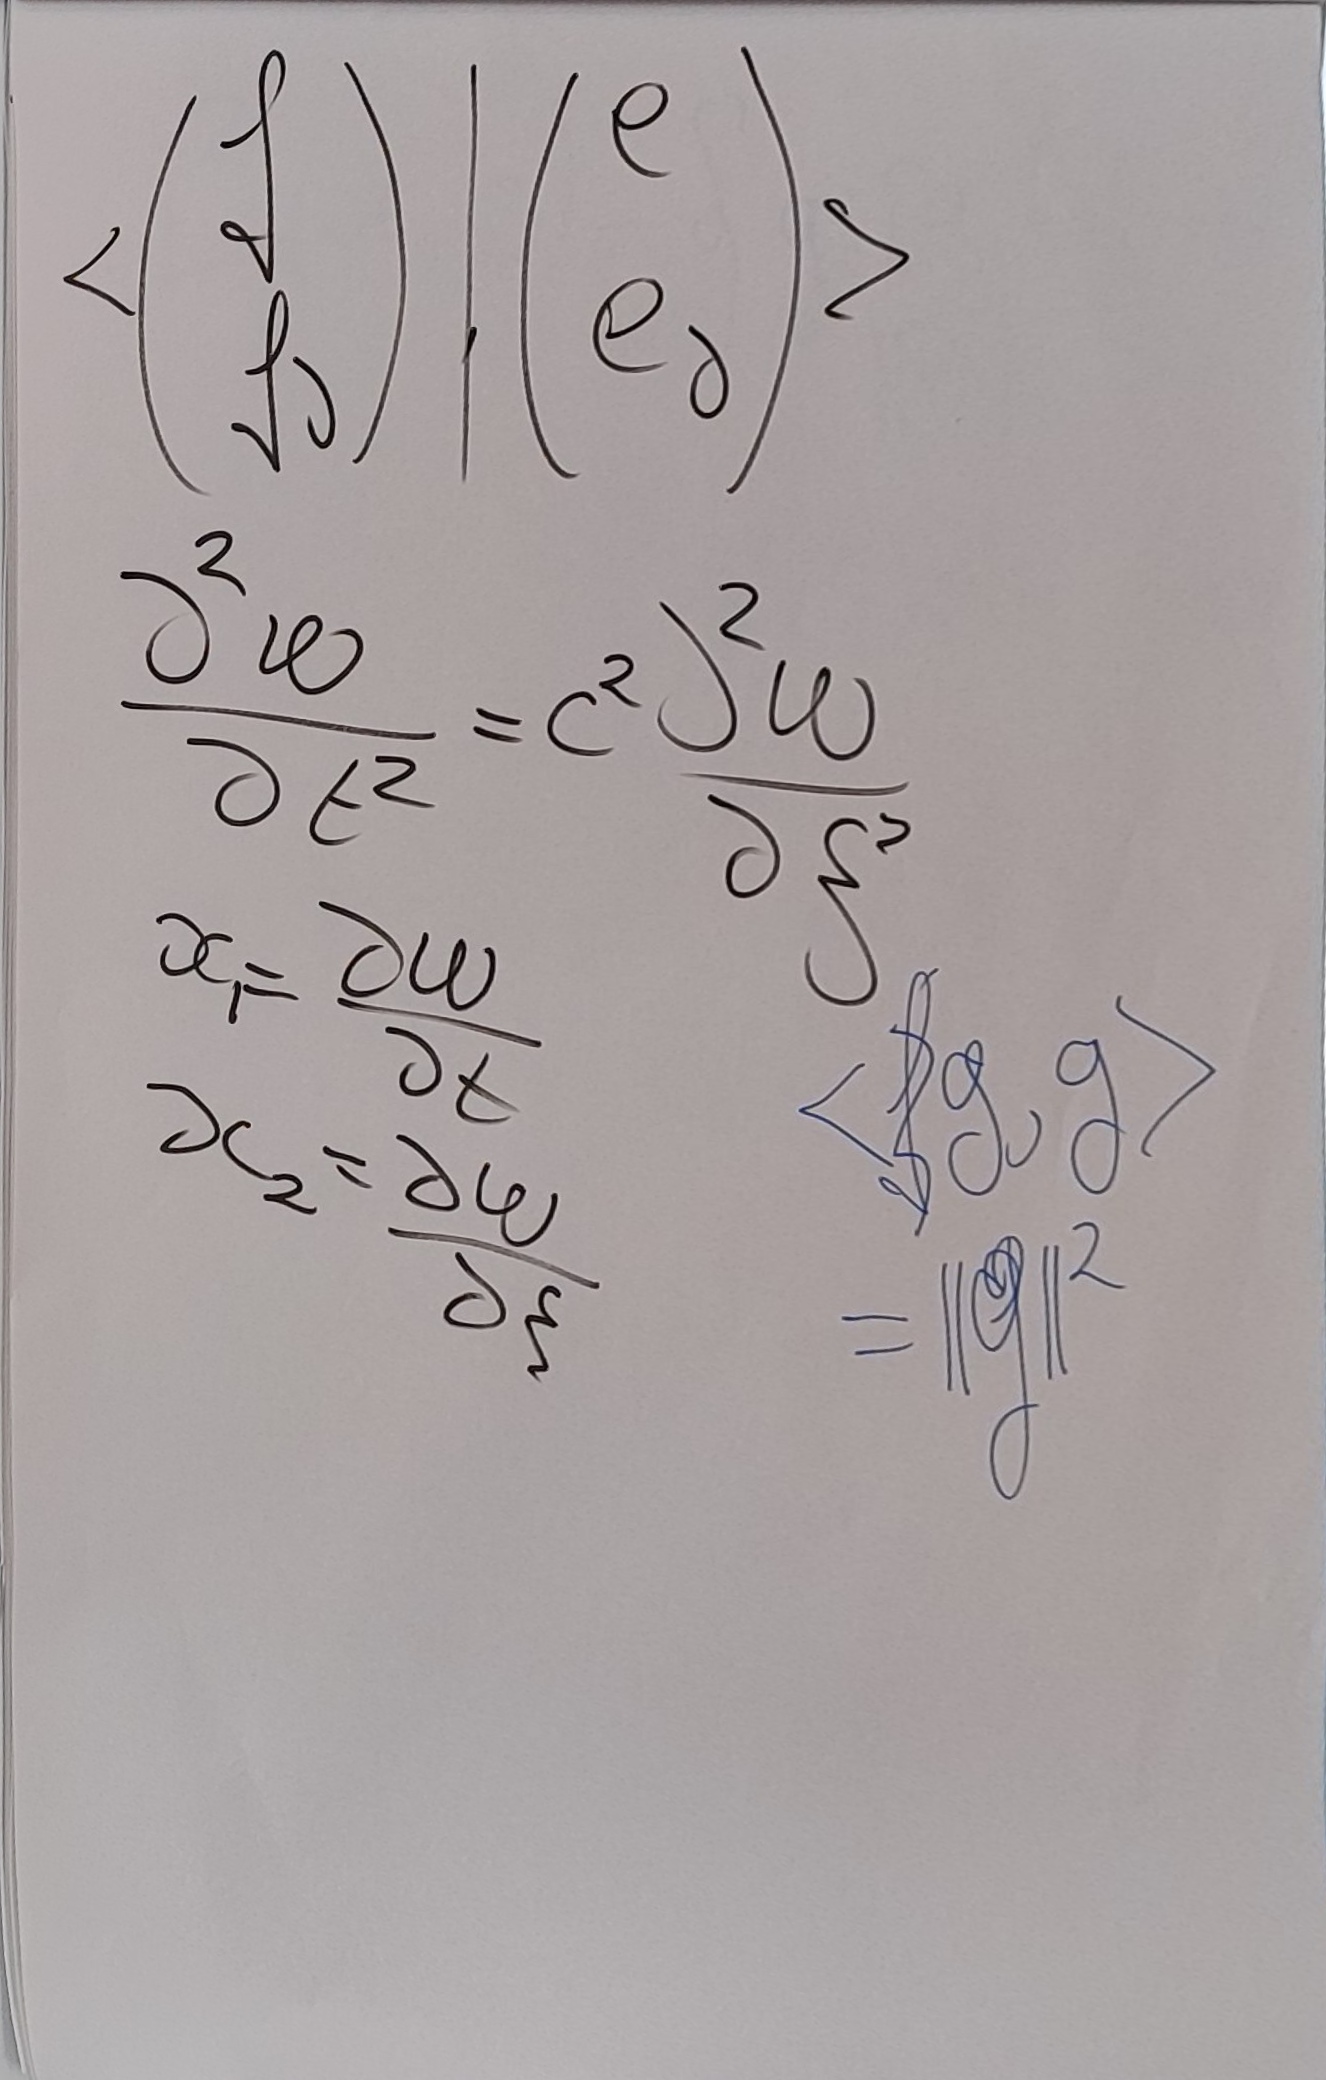 < ( f f_∂ ) | ( e e_∂ ) >
∂²w/∂t² = c² ∂²w/∂ξ²
x₁ = ∂w/∂t
x₂ = ∂w/∂ξ
<g, g>
= ||g||²